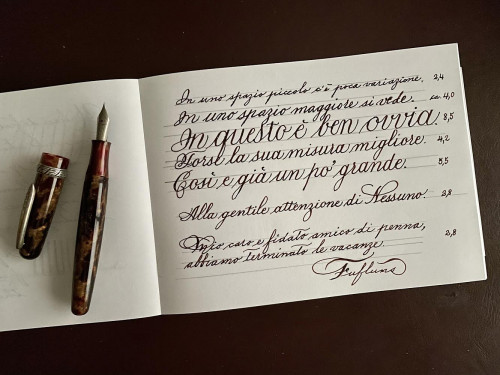 In uno spazio piccolo c'è poca variazione. 2,4
In uno spazio maggiore si vede. ca. 4,0
In questo è ben ovvia 8,5
Forse la sua misura migliore. 4,2
Così e già un po' grande. 5,5
Alla gentile attenzione di Nessuno. 2,8
Mio caro e fidato amico di penna, 2,8
abbiamo terminato le vacanze.
Fufluns